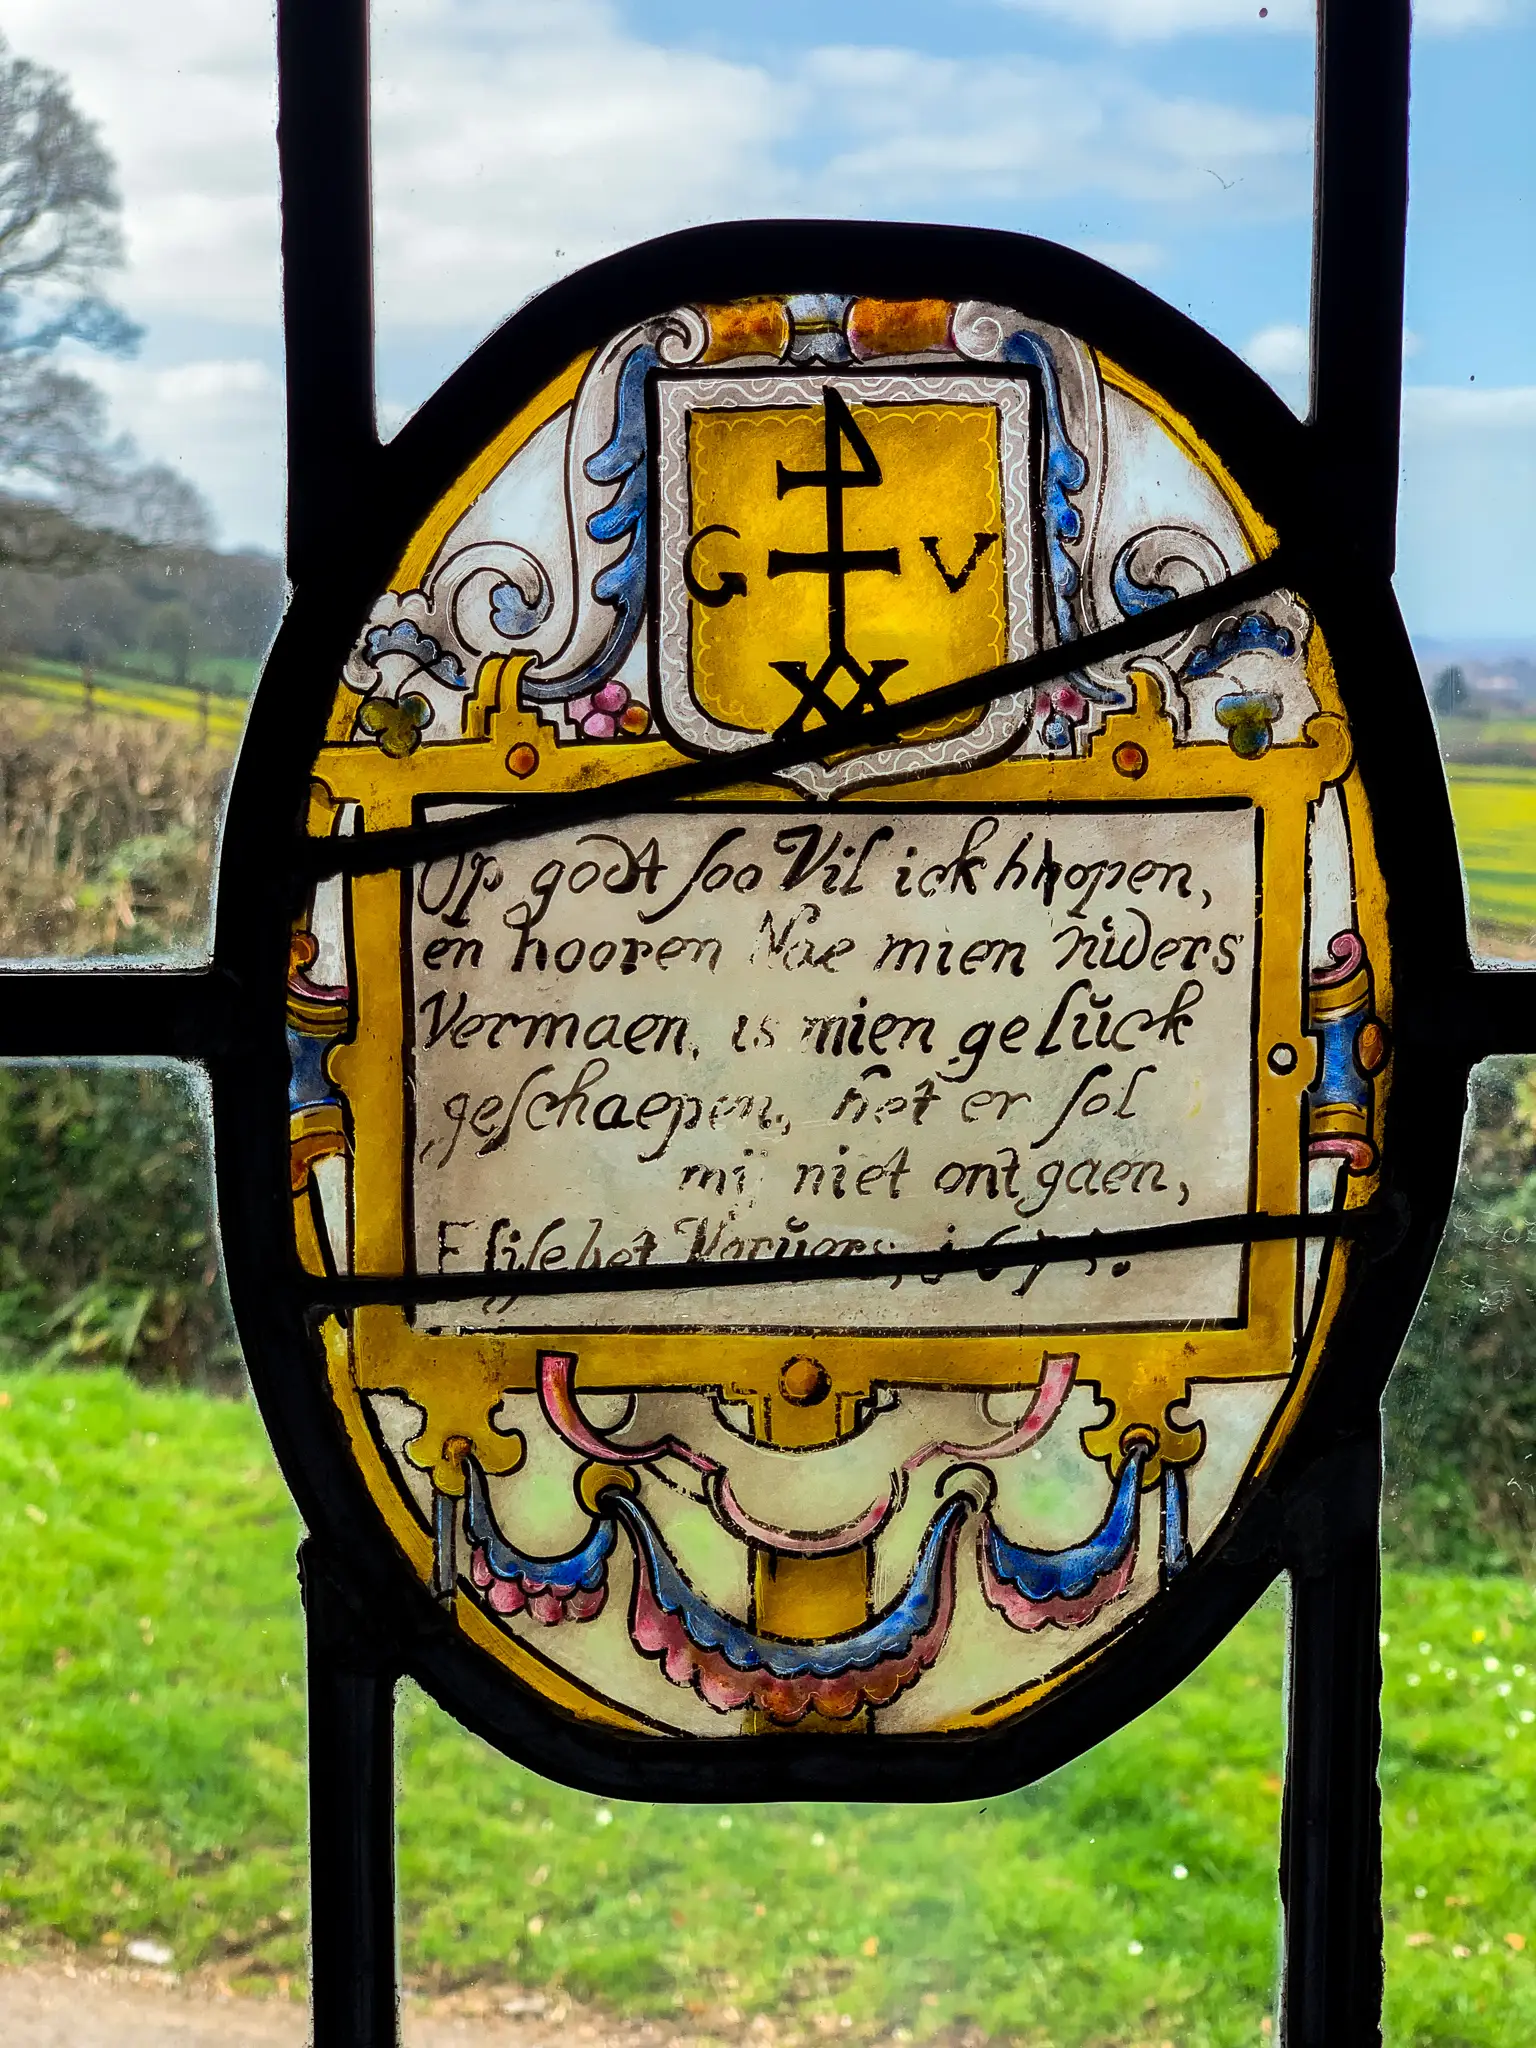 G V
Op godt soo Vil ick hhopen,
en hooren Nae mien niders
Vermaen, is mien geluck
geschaepen, het er sol
mij niet ontgaen,
Elisebet